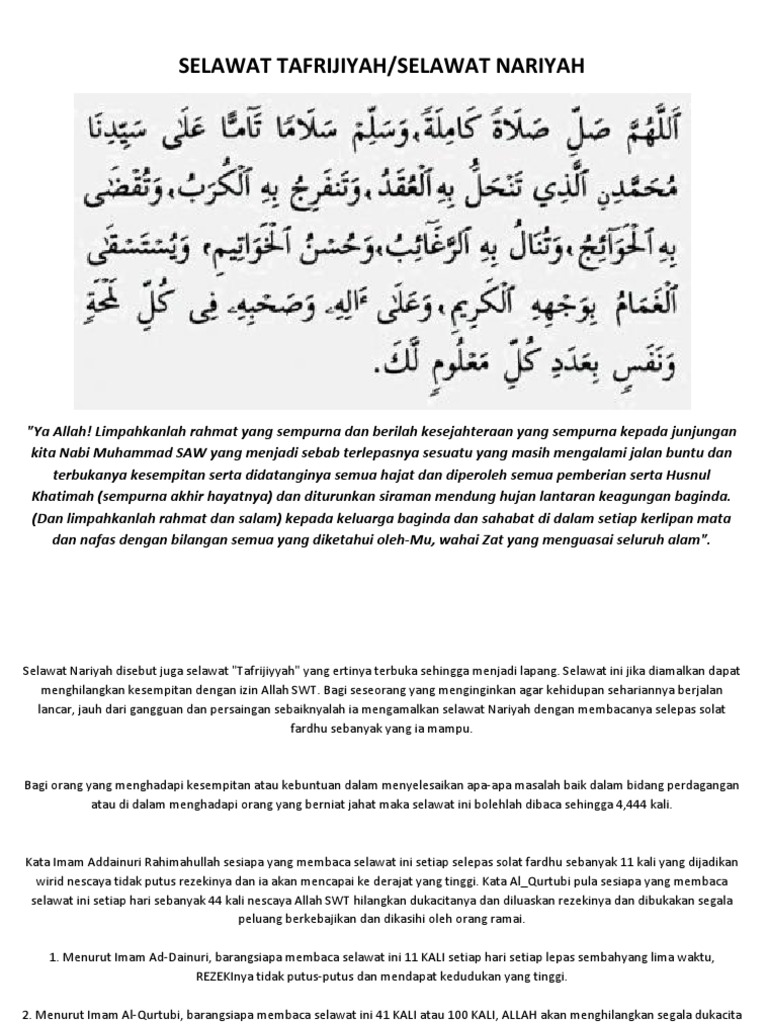 SELAWAT TAFRIJIYAH/SELAWAT NARIYAH
اَللّٰهُمَّ صَلِّ صَلَاةً كَامِلَةً، وَسَلِّمْ سَلَامًا تَآمًّا عَلَى سَيِّدِنَا
مُحَمَّدِنِ ٱلَّذِي تَنْحَلُّ بِهِ ٱلْعُقَدُ، وَتَنْفَرِجُ بِهِ ٱلْكُرَبُ، وَتُقْضَى
بِهِ ٱلْحَوَآئِجُ، وَتُنَالُ بِهِ ٱلرَّغَآئِبُ، وَحُسْنُ ٱلْخَوَاتِيمِ، وَيُسْتَسْقَى
ٱلْغَمَامُ بِوَجْهِهِ ٱلْكَرِيمِ، وَعَلَى ءَالِهِ وَصَحْبِهِ فِى كُلِّ لَمْحَةٍ
وَنَفَسٍ بِعَدَدِ كُلِّ مَعْلُومٍ لَّكَ.
"Ya Allah! Limpahkanlah rahmat yang sempurna dan berilah kesejahteraan yang sempurna kepada junjungan
kita Nabi Muhammad SAW yang menjadi sebab terlepasnya sesuatu yang masih mengalami jalan buntu dan
terbukanya kesempitan serta didatanginya semua hajat dan diperoleh semua pemberian serta Husnul
Khatimah (sempurna akhir hayatnya) dan diturunkan siraman mendung hujan lantaran keagungan baginda.
(Dan limpahkanlah rahmat dan salam) kepada keluarga baginda dan sahabat di dalam setiap kerlipan mata
dan nafas dengan bilangan semua yang diketahui oleh-Mu, wahai Zat yang menguasai seluruh alam".
Selawat Nariyah disebut juga selawat "Tafrijiyyah" yang ertinya terbuka sehingga menjadi lapang. Selawat ini jika diamalkan dapat
menghilangkan kesempitan dengan izin Allah SWT. Bagi seseorang yang menginginkan agar kehidupan sehariannya berjalan
lancar, jauh dari gangguan dan persaingan sebaiknyalah ia mengamalkan selawat Nariyah dengan membacanya selepas solat
fardhu sebanyak yang ia mampu.
Bagi orang yang menghadapi kesempitan atau kebuntuan dalam menyelesaikan apa-apa masalah baik dalam bidang perdagangan
atau di dalam menghadapi orang yang berniat jahat maka selawat ini bolehlah dibaca sehingga 4,444 kali.
Kata Imam Addainuri Rahimahullah sesiapa yang membaca selawat ini setiap selepas solat fardhu sebanyak 11 kali yang dijadikan
wirid nescaya tidak putus rezekinya dan ia akan mencapai ke derajat yang tinggi. Kata Al_Qurtubi pula sesiapa yang membaca
selawat ini setiap hari sebanyak 44 kali nescaya Allah SWT hilangkan dukacitanya dan diluaskan rezekinya dan dibukakan segala
peluang berkebajikan dan dikasihi oleh orang ramai.
1. Menurut Imam Ad-Dainuri, barangsiapa membaca selawat ini 11 KALI setiap hari setiap lepas sembahyang lima waktu,
REZEKInya tidak putus-putus dan mendapat kedudukan yang tinggi.
2. Menurut Imam Al-Qurtubi, barangsiapa membaca selawat ini 41 KALI atau 100 KALI, ALLAH akan menghilangkan segala dukacita